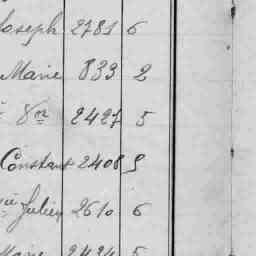 Joseph 2781 6
Marie 833 2
2427 5
Constant 2408 5
Julien 2610 6
Marie 2424 5